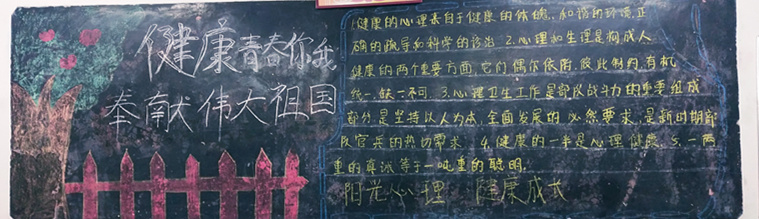 健康青春你我
奉献伟大祖国
1.健康的心理来自于健康的体魄,和谐的环境,正
确的领导和科学的诊治 2.心理和生理是构成人
健康的两个重要方面,它们偶尔依附,彼此制约,有机
统一,缺一不可. 3.心理卫生工作是部队战斗力的重要组成
部分,是坚持以人为本,全面发展的必然要求,是新时期部
队官兵的热切需求. 4.健康的一半是心理健康. 5.一两
重的真诚等于一吨重的聪明.
阳光心理 健康成长